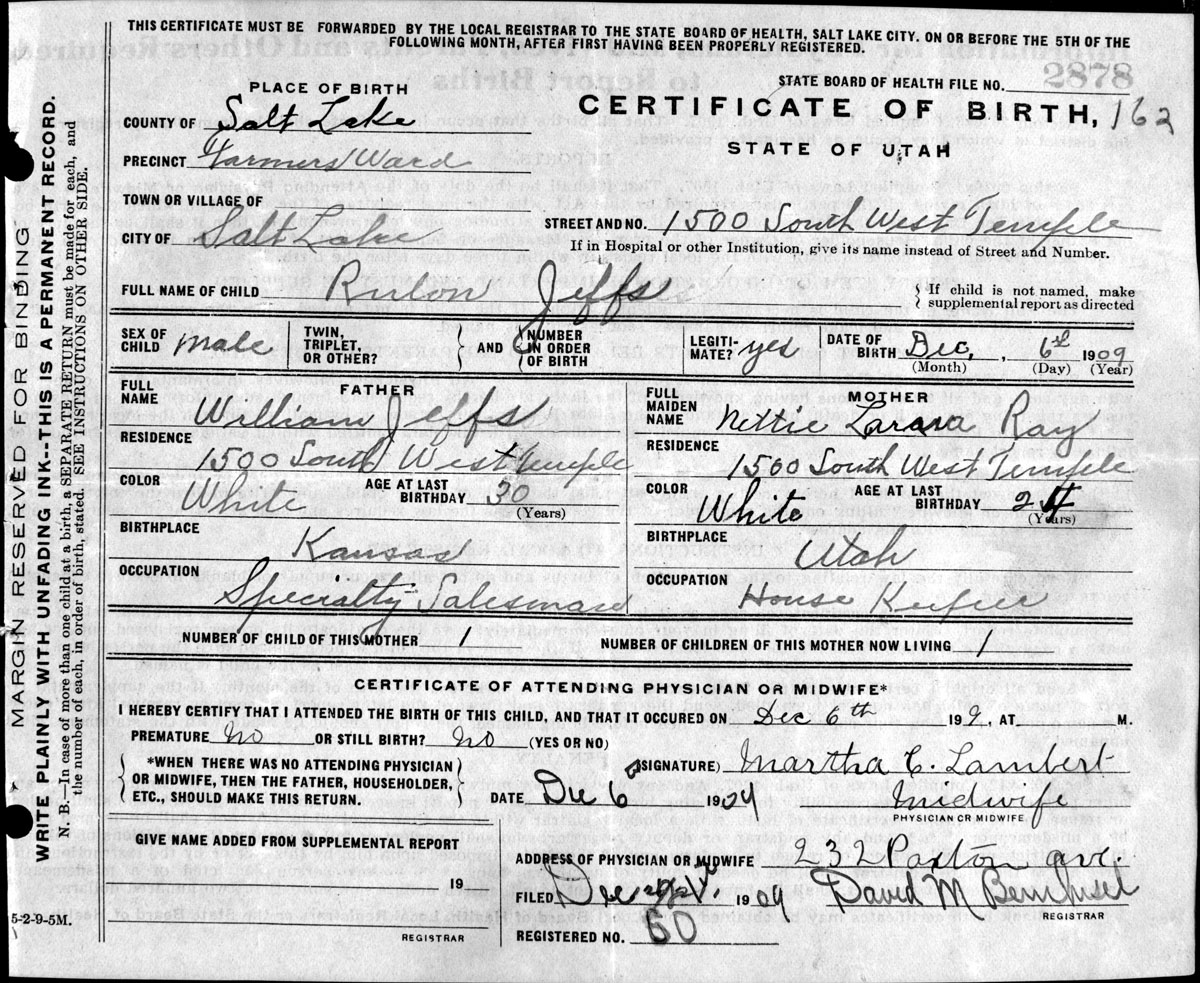 THIS CERTIFICATE MUST BE FORWARDED BY THE LOCAL REGISTRAR TO THE STATE BOARD OF HEALTH, SALT LAKE CITY. ON OR BEFORE THE 5TH OF THE
FOLLOWING MONTH, AFTER FIRST HAVING BEEN PROPERLY REGISTERED.
STATE BOARD OF HEALTH FILE NO.
2878
PLACE OF BIRTH
CERTIFICATE OF BIRTH, 162
COUNTY OF Salt Lake
STATE OF UTAH
PRECINCT Farmers Ward
TOWN OR VILLAGE OF
STREET AND NO. 1500 South West Temple
CITY OF Salt Lake
If in Hospital or other Institution, give its name instead of Street and Number.
FULL NAME OF CHILD Rulon Jeffs
{ If child is not named, make
supplemental report as directed
SEX OF CHILD male TWIN, TRIPLET, OR OTHER? } AND { NUMBER IN ORDER OF BIRTH LEGITI-MATE? yes DATE OF BIRTH Dec, 6th 1909
(Month) (Day) (Year)
FATHER
FULL NAME William Jeffs
RESIDENCE
1500 South West Temple
COLOR White AGE AT LAST BIRTHDAY 30
(Years)
BIRTHPLACE
Kansas
OCCUPATION
Specialty Salesman
MOTHER
FULL MAIDEN NAME Nettie Ray
RESIDENCE
1500 South West Temple
COLOR White AGE AT LAST BIRTHDAY 24
(Years)
BIRTHPLACE
Utah
OCCUPATION
House Keeper
NUMBER OF CHILD OF THIS MOTHER 1 NUMBER OF CHILDREN OF THIS MOTHER NOW LIVING 1
CERTIFICATE OF ATTENDING PHYSICIAN OR MIDWIFE*
I HEREBY CERTIFY THAT I ATTENDED THE BIRTH OF THIS CHILD, AND THAT IT OCCURED ON Dec 6th 199, AT M.
PREMATURE No OR STILL BIRTH? No (YES OR NO)
{ *WHEN THERE WAS NO ATTENDING PHYSICIAN
OR MIDWIFE, THEN THE FATHER, HOUSEHOLDER,
ETC., SHOULD MAKE THIS RETURN. }
(SIGNATURE) Martha C. Lambert
DATE Dec 6 1909 Midwife
PHYSICIAN OR MIDWIFE
GIVE NAME ADDED FROM SUPPLEMENTAL REPORT
19
REGISTRAR
ADDRESS OF PHYSICIAN OR MIDWIFE 232 Paxton ave.
FILED Dec 1909 David M
REGISTRAR
REGISTERED NO. 60
5-2-9-5M.
MARGIN RESERVED FOR BINDING
WRITE PLAINLY WITH UNFADING INK--THIS IS A PERMANENT RECORD.
N. B.—In case of more than one child at a birth, a SEPARATE RETURN must be made for each, and
the number of each, in order of birth, stated. SEE INSTRUCTIONS ON OTHER SIDE.